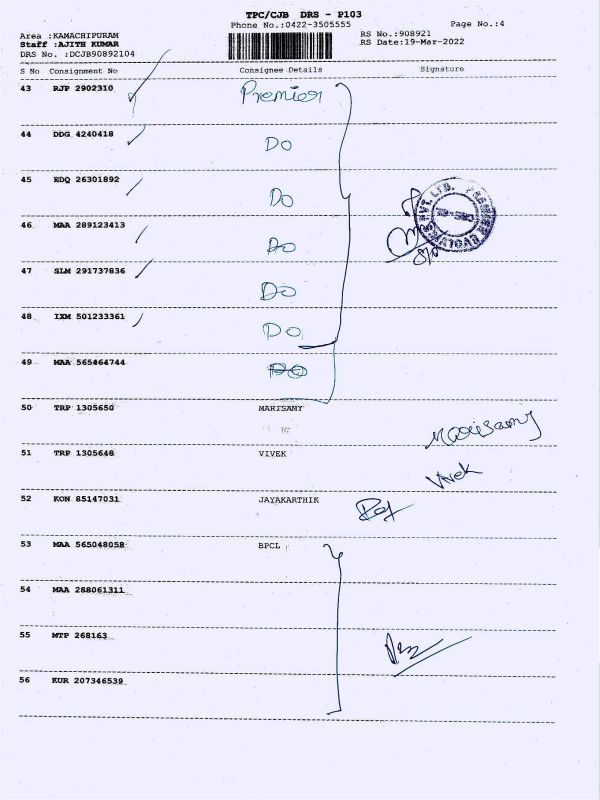 TPC/CJB DRS - P103
Phone No.:0422-3505555 Page No.:4
Area :KAMACHIPURAM RS No.:908921
Staff :AJITH KUMAR RS Date:19-Mar-2022
DRS No. :DCJB90892104
S No Consignment No Consignee Details Signature
43 RJP 2902310 Premier
44 DDG 4240418 DO
45 EDQ 26301892 DO
46 MAA 289123413 DO
47 SLM 291737836 DO
48 IXM 501233361 DO
49 MAA 565464744 DO
50 TRP 1305650 MARISAMY Marisamy
51 TRP 1305648 VIVEK Vivek
52 KON 85147031 JAYAKARTHIK
53 MAA 565048058 BPCL
54 MAA 288061311
55 MTP 268163
56 KUR 207346539
PREMIER EVOLVICS PVT. LTD.